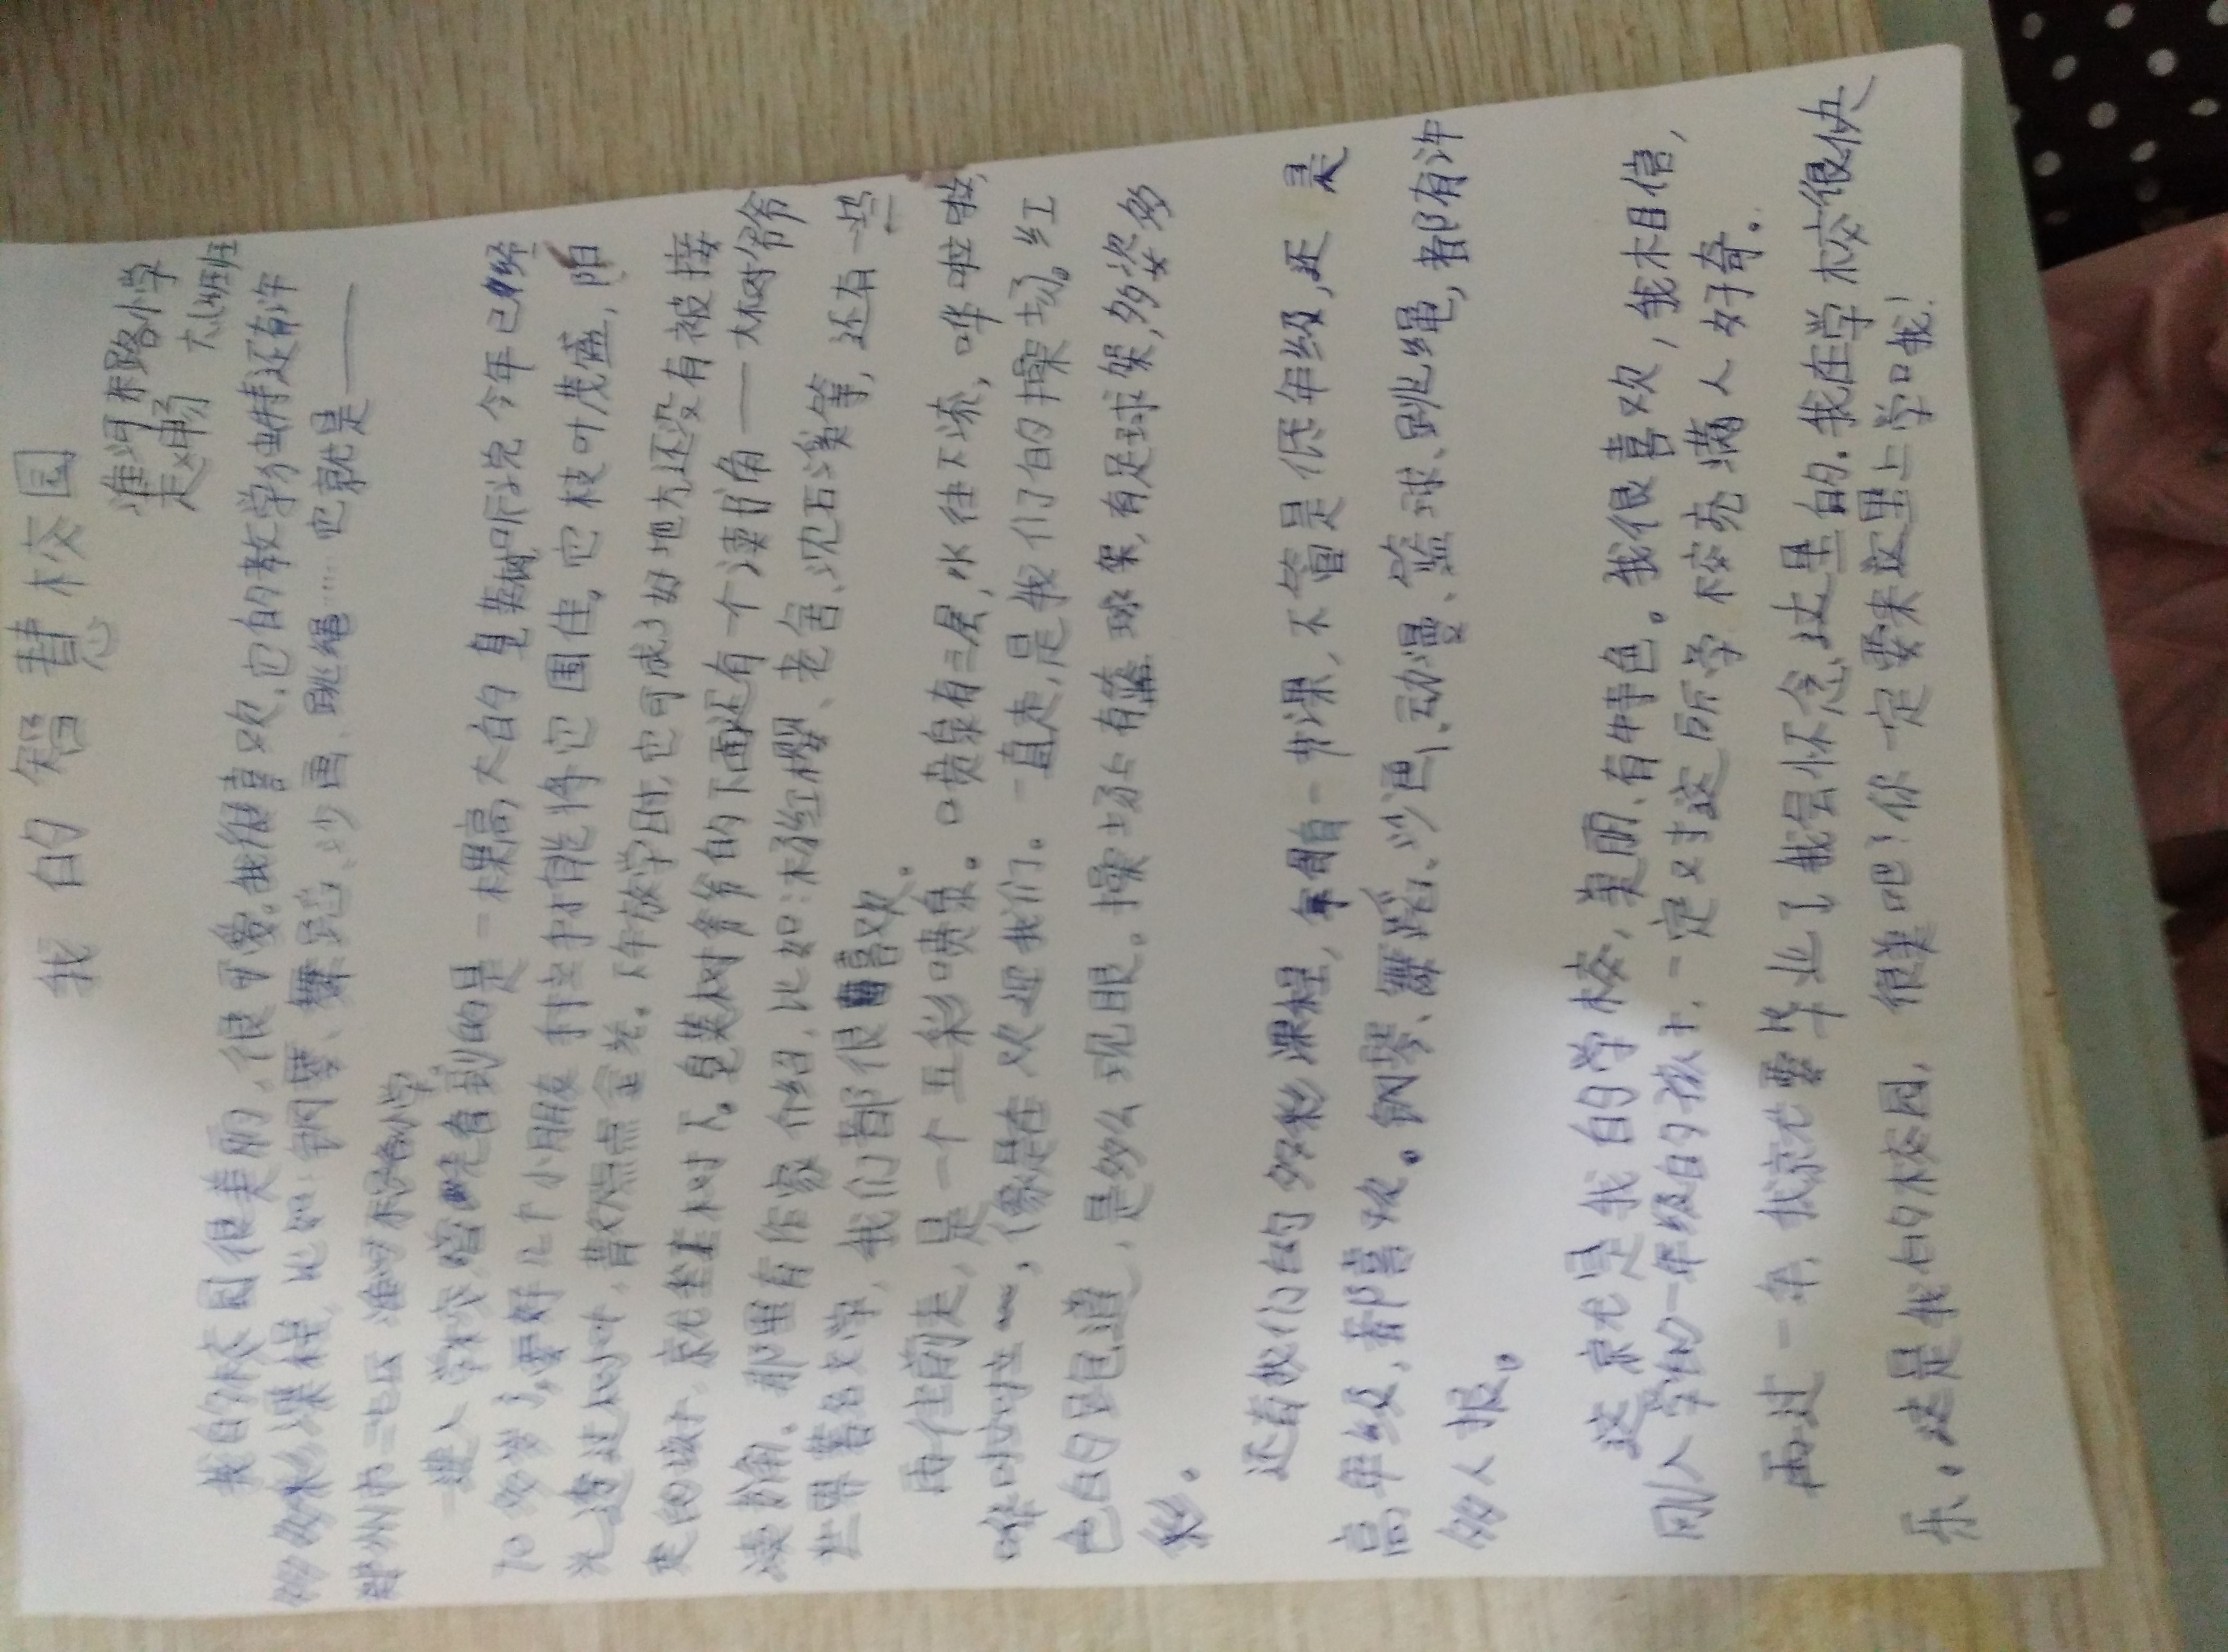 我的智慧校园
淮河东路小学
赵申畅 六(4)班
我的校园很美丽,很可爱。我很喜欢,它的教学分独特还有许
多多彩课程,比如:钢琴、舞蹈、沙画、跳绳……它就是——
郑州市二七区淮河东路小学。
一进入学校,首先看到的是一棵高大的皂荚树听说今年已经
70多岁了,要好几个小朋友手拉手才能将它围住。它枝叶茂盛,阳
光透过树叶,散点点金光。下午放学时,它可成了好地方还没有被接
走的孩子,就坐在树下。皂荚树爷爷的下面还有一个读书角——大树爷爷
读书角。那里有作家介绍,比如:杨红樱、老舍、沈石溪等,还有一些
世界著名文学,我们都很喜欢。
再往前走,是一个五彩喷泉。喷泉有三层,水往下流,哗啦啦,
哗啦啦~,像是在欢迎我们。一直走,是我们的操场。红
色的跑道,是多么现眼。操场上有篮球架,有足球架,多姿多
彩。
还有我们的多彩课程,每周有一节课,不管是低年级,还是
高年级,都喜欢。钢琴、舞蹈、沙画、动漫、篮球、跳绳,都有许
多人报。
这就是我的学校,美丽、有特色。我很喜欢,我相信,
刚入学的一年级的孩子,一定对这所学校充满人好奇。
再过一年,我就要毕业了我会怀念这里的。我在学校很快
乐。这是我的校园,很美吧!你一定要来这里上学哦!